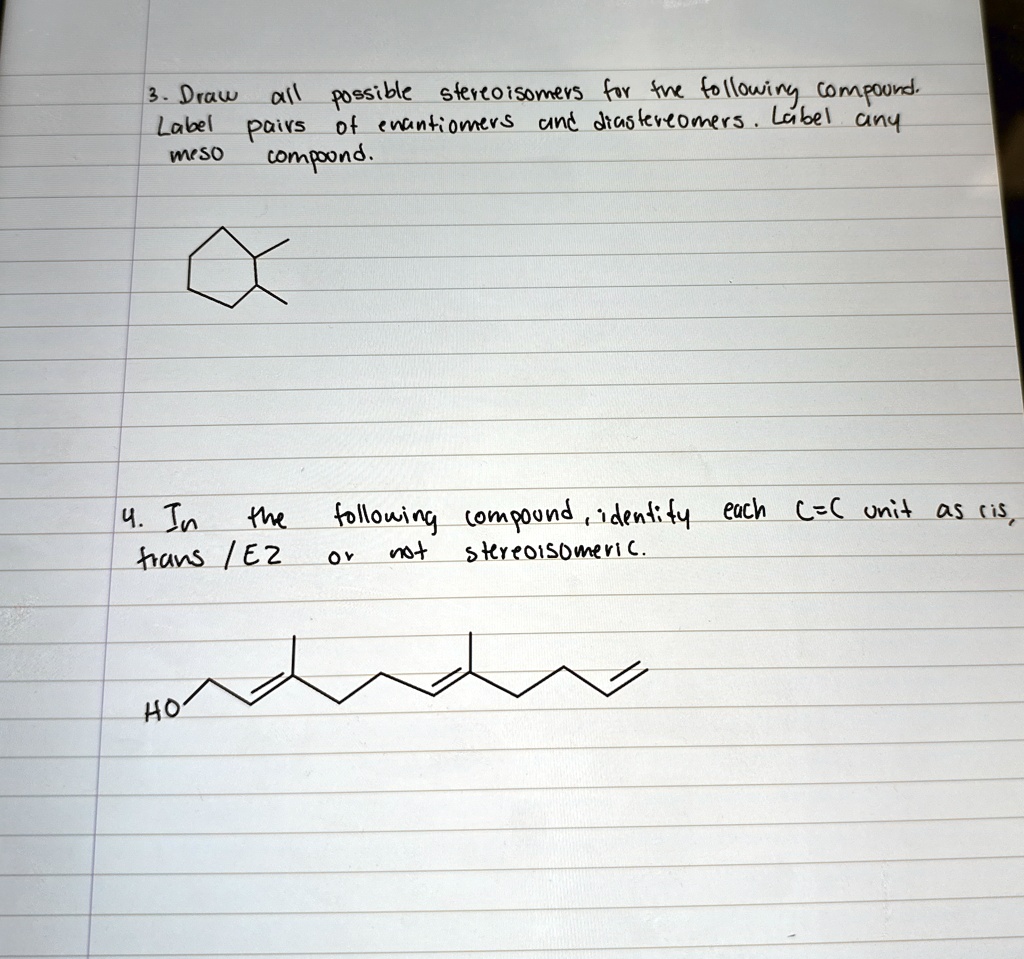 3. Draw all possible stereoisomers for the following compound.
Label pairs of enantiomers and diastereomers. Label any
meso compound.
4. In the following compound, identify each C=C unit as cis,
trans / EZ or not stereoisomeric.
HO